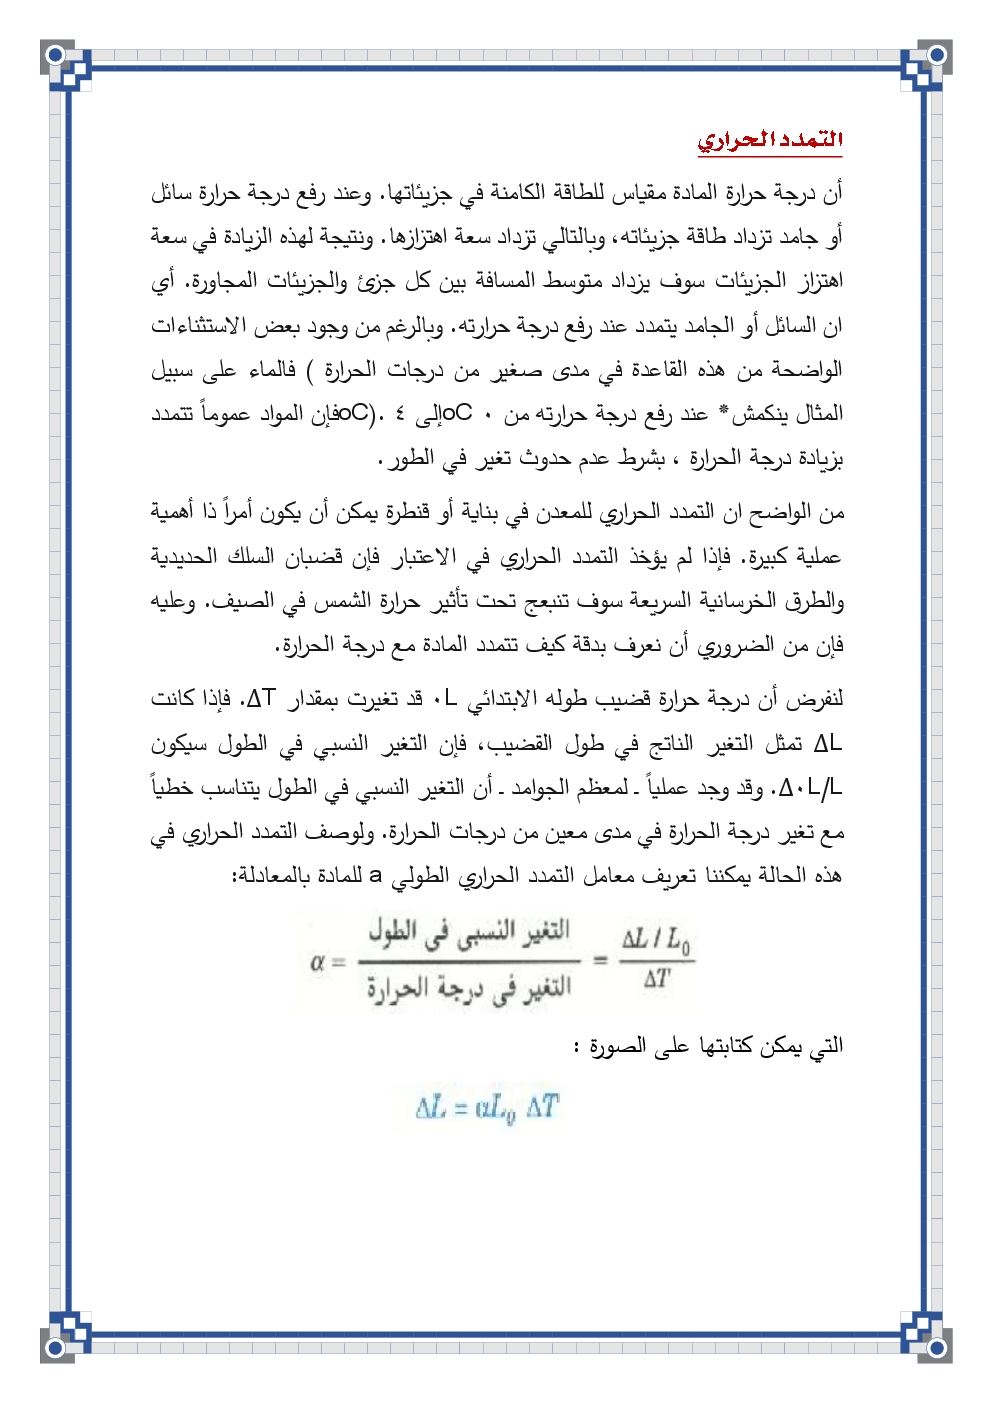 التمدد الحراري
أن درجة حرارة المادة مقياس للطاقة الكامنة في جزيئاتها. وعند رفع درجة حرارة سائل
أو جامد تزداد طاقة جزيئاته، وبالتالي تزداد سعة اهتزازها. ونتيجة لهذه الزيادة في سعة
اهتزاز الجزيئات سوف يزداد متوسط المسافة بين كل جزئ والجزيئات المجاورة. أي
ان السائل أو الجامد يتمدد عند رفع درجة حرارته. وبالرغم من وجود بعض الاستثناءات
الواضحة من هذه القاعدة في مدى صغير من درجات الحرارة ) فالماء على سبيل
المثال ينكمش* عند رفع درجة حرارته من ٠ oCإلى ٤ .(oCفإن المواد عموماً تتمدد
بزيادة درجة الحرارة ، بشرط عدم حدوث تغير في الطور.
من الواضح ان التمدد الحراري للمعدن في بناية أو قنطرة يمكن أن يكون أمراً ذا أهمية
عملية كبيرة. فإذا لم يؤخذ التمدد الحراري في الاعتبار فإن قضبان السلك الحديدية
والطرق الخرسانية السريعة سوف تنبعج تحت تأثير حرارة الشمس في الصيف. وعليه
فإن من الضروري أن نعرف بدقة كيف تتمدد المادة مع درجة الحرارة.
لنفرض أن درجة حرارة قضيب طوله الابتدائي ٠L قد تغيرت بمقدار ΔT. فإذا كانت
ΔL تمثل التغير الناتج في طول القضيب، فإن التغير النسبي في الطول سيكون
Δ٠L/L. وقد وجد عملياً ـ لمعظم الجوامد ـ أن التغير النسبي في الطول يتناسب خطياً
مع تغير درجة الحرارة في مدى معين من درجات الحرارة. ولوصف التمدد الحراري في
هذه الحالة يمكننا تعريف معامل التمدد الحراري الطولي a للمادة بالمعادلة:
α = التغير النسبى فى الطول / التغير فى درجة الحرارة = ΔL / L₀ / ΔT
التي يمكن كتابتها على الصورة :
ΔL = αL₀ ΔT